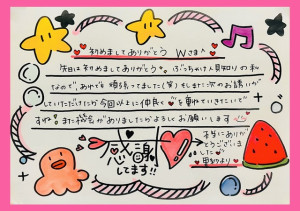 初めましてありがとう Wさま
先日は初めましてありがとう。ぶっちゃけ人見知りの私
なので、あれでも頑張ってました(笑)もしまた次のお誘いが
していただけたら今回以上に仲良く♡を重ねていきたいで
すね♪また機会がありましたらよろしくお願いします
感謝
してます!!
本当にありが
とうございま
した♥